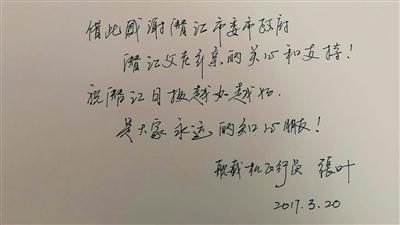 借此感谢潜江市委市政府
潜江父老乡亲的关心和支持！
祝潜江日报越办越好.
是大家永远的知心朋友！
舰载机飞行员 張叶
2017.3.20